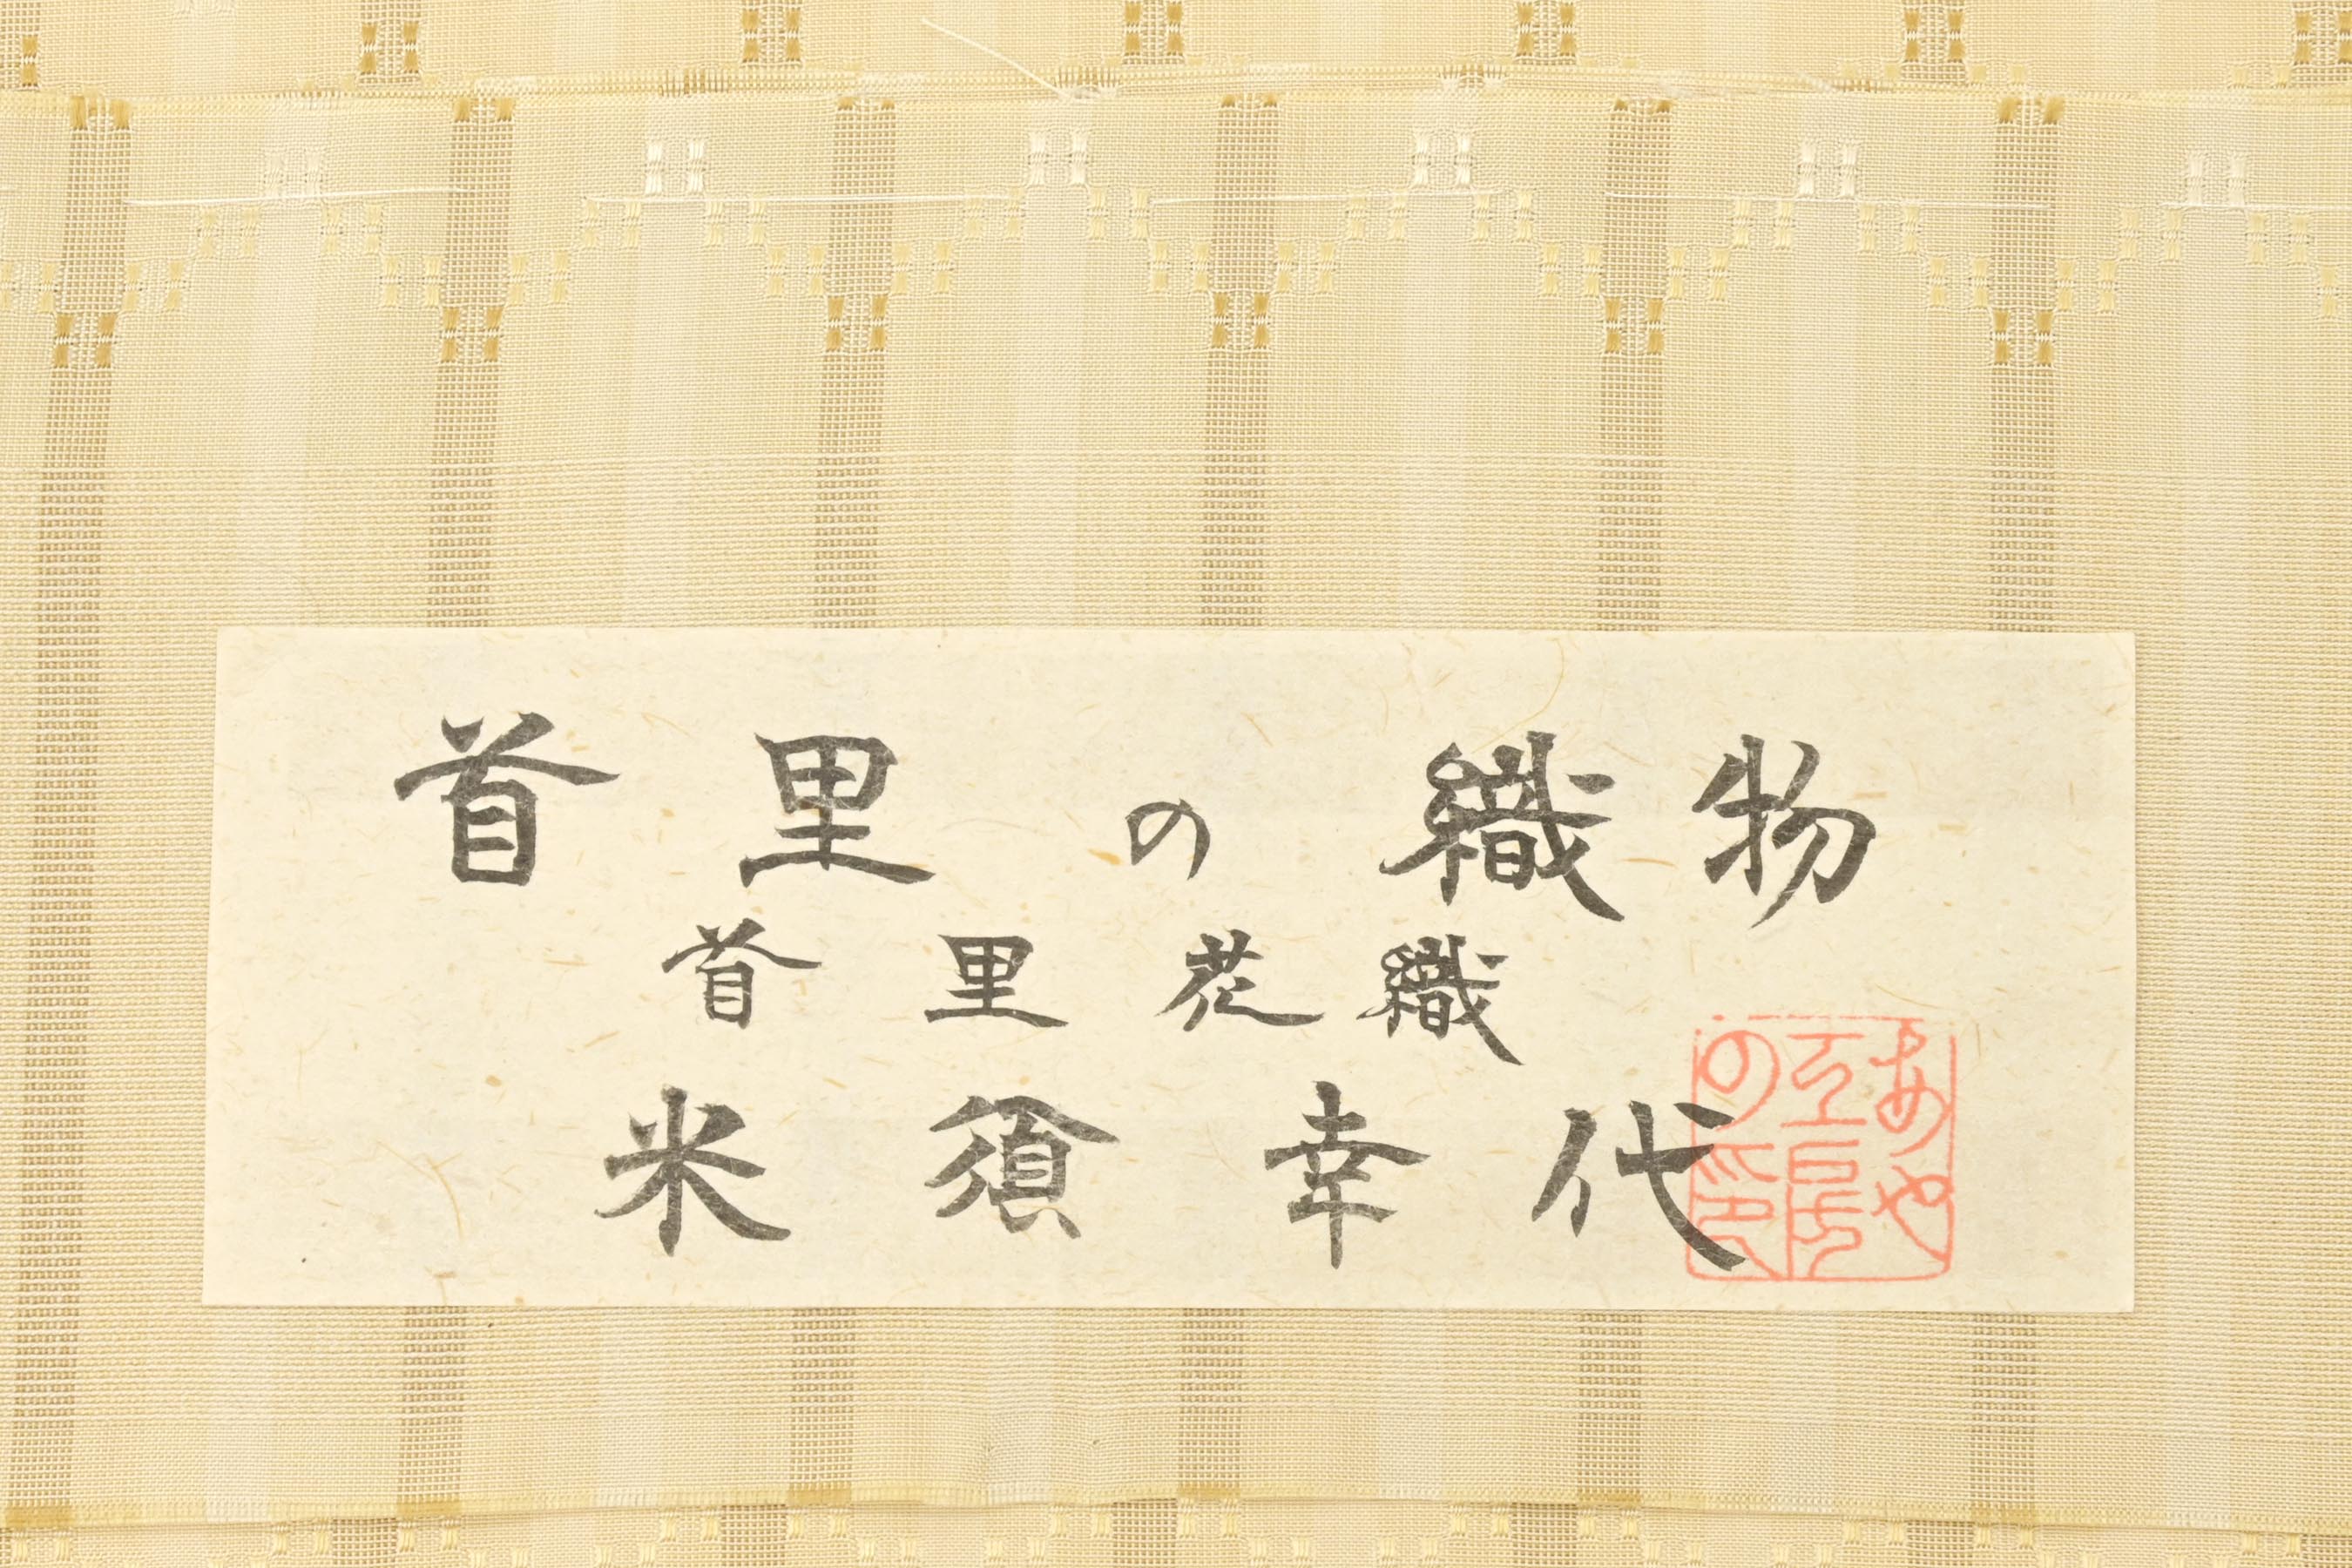 首里の織物
首里花織
米須幸代
あや
工房
の印